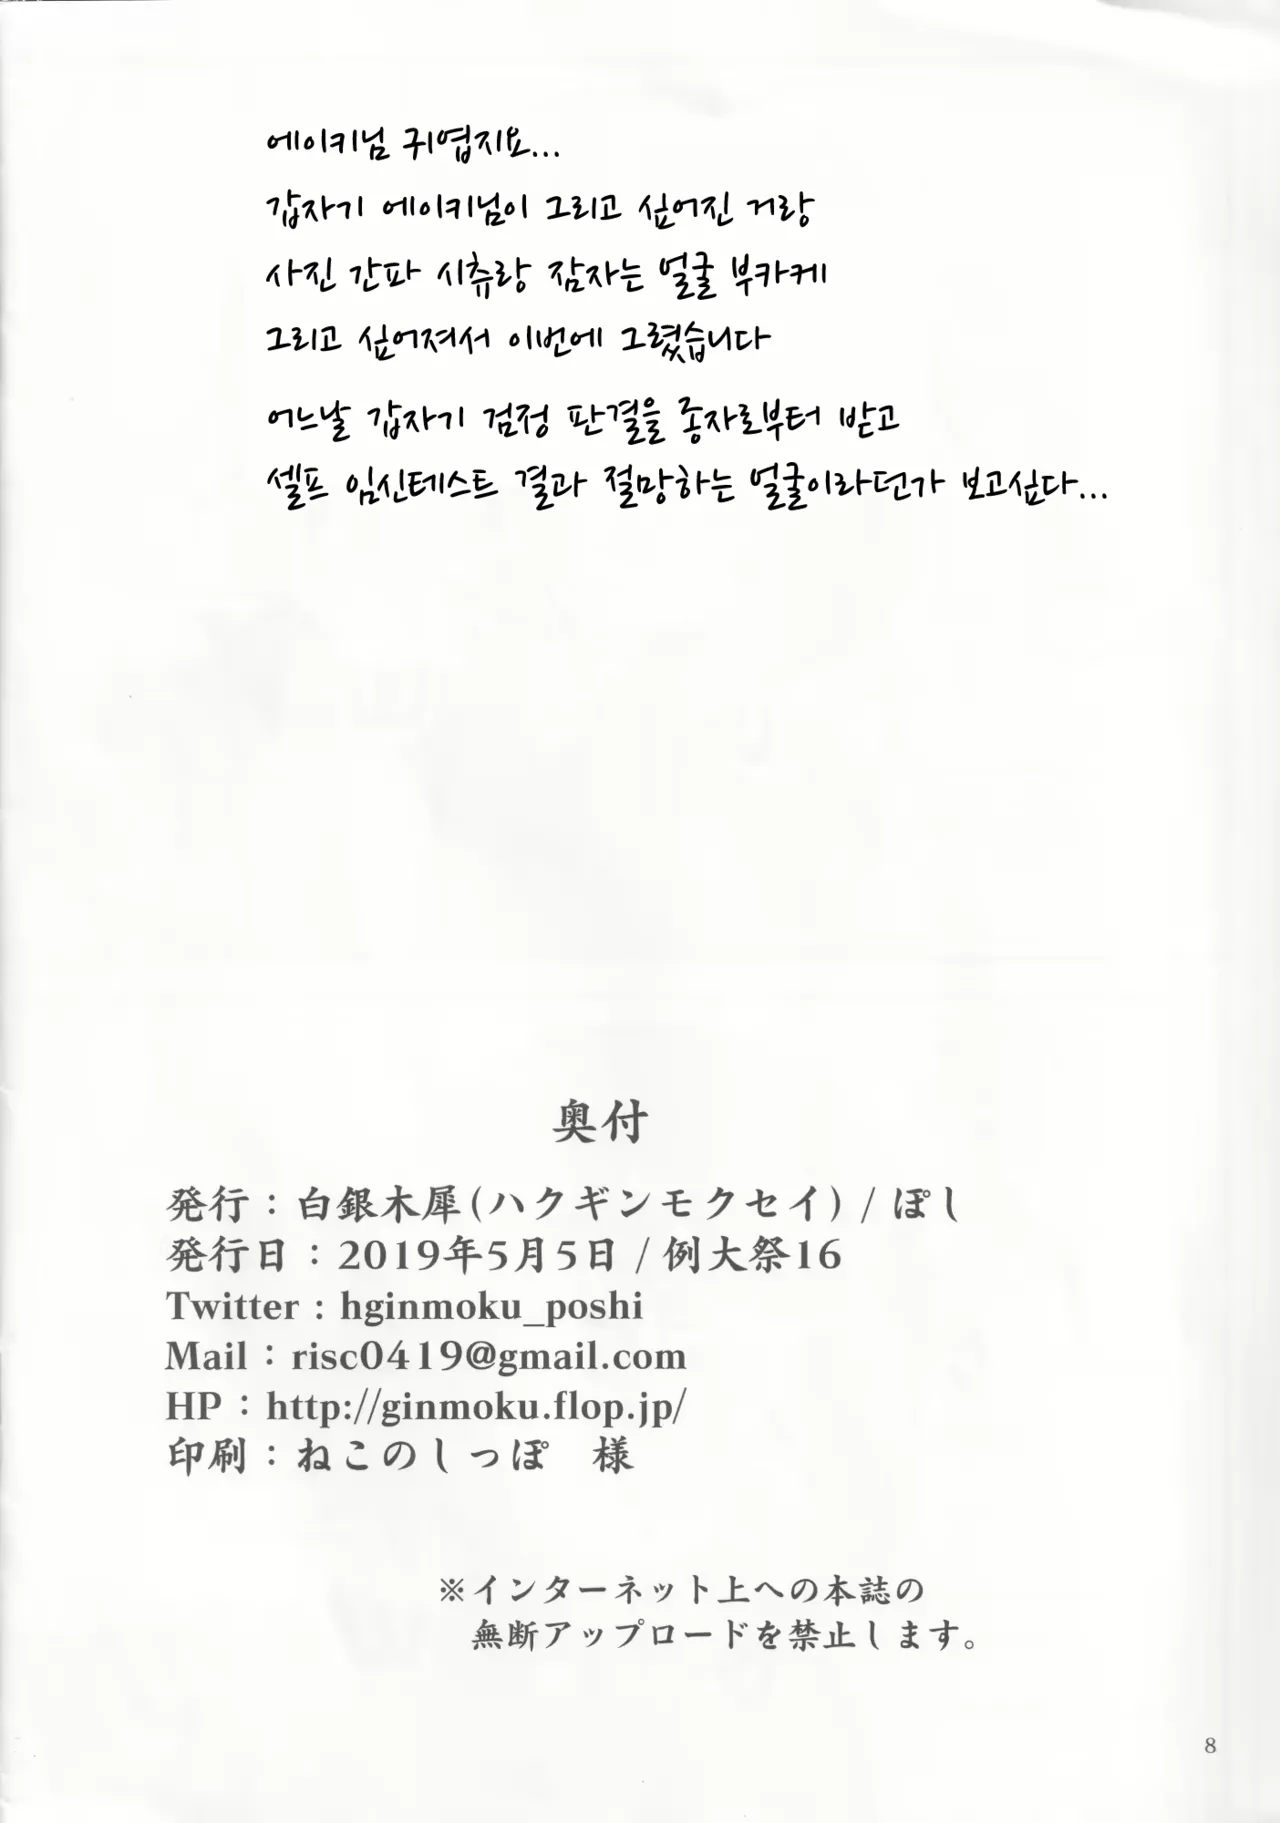 에이키님 귀엽지요...
갑자기 에이키님이 그리고 싶어진 거랑
사진 간파 시츄랑 잠자는 얼굴 부카케
그리고 싶어져서 이번에 그렸습니다
어느날 갑자기 검정 판결을 종자로부터 받고
셀프 임신테스트 결과 절망하는 얼굴이라던가 보고싶다...
奥付
発行：白銀木犀(ハクギンモクセイ) / ぽし
発行日：2019年5月5日 / 例大祭16
Twitter : hginmoku_poshi
Mail : risc0419@gmail.com
HP : http://ginmoku.flop.jp/
印刷：ねこのしっぽ　様
※インターネット上への本誌の
無断アップロードを禁止します。
8